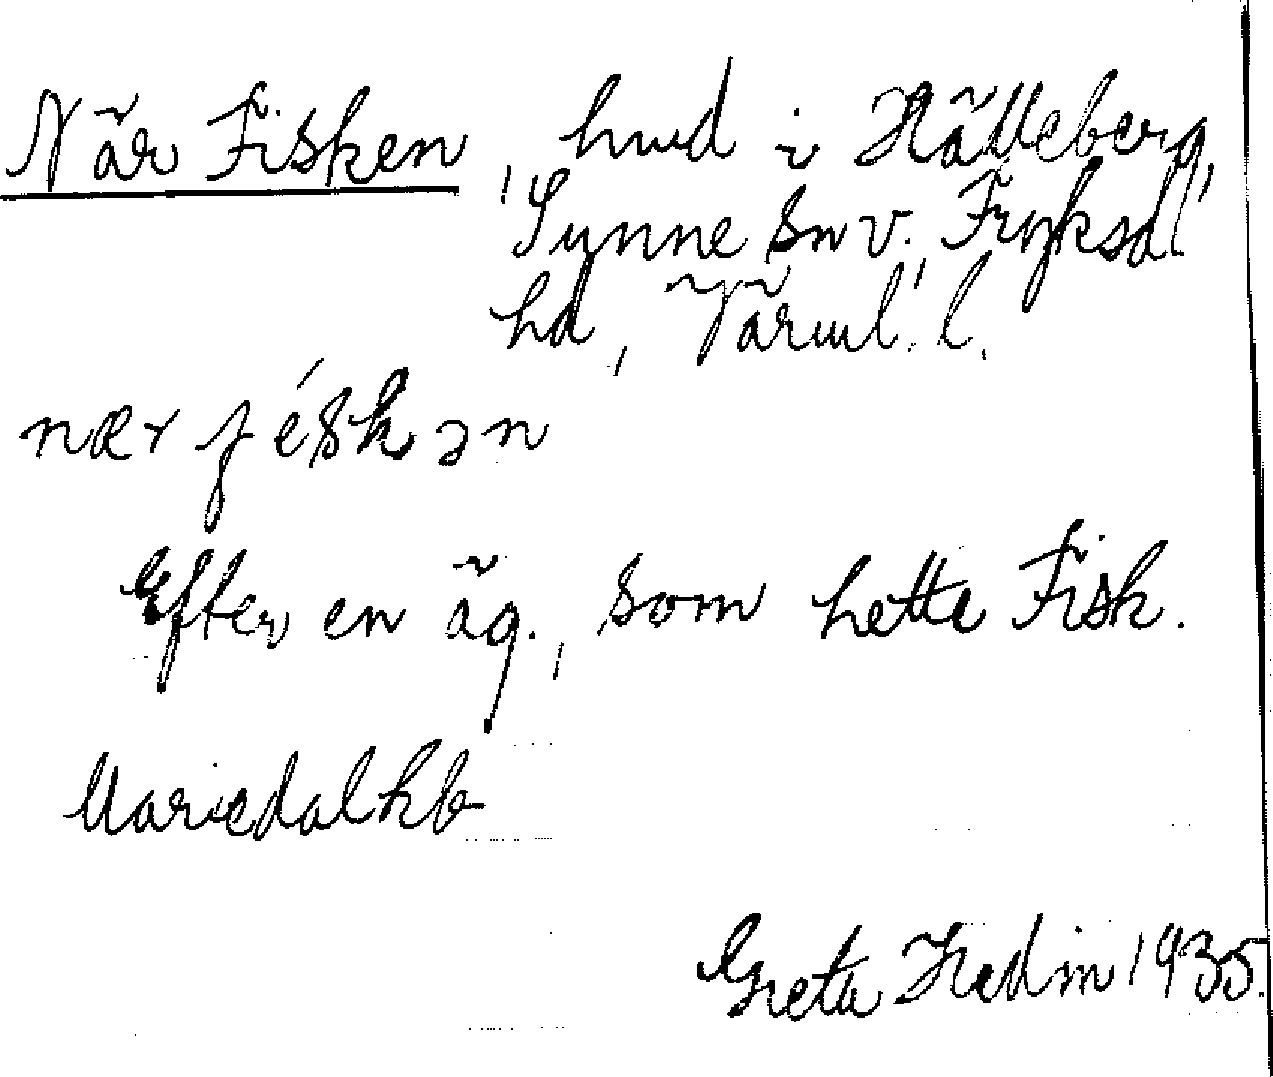 När Fisken, hmd i Hälleberg,
Sunne sn v., Fryksd.
hd, Värml. l.
nær féskən
Efter en äg., som hette Fisk.
Mariedal hb
Greta Hedin 1935.